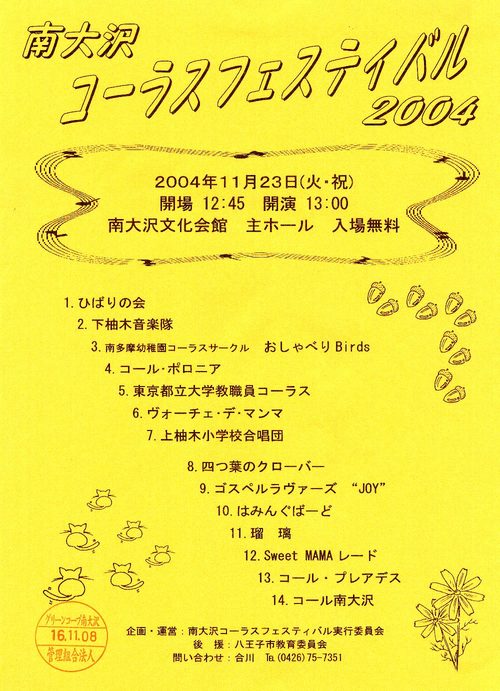 南大沢
コーラスフェスティバル
2004
2004年11月23日(火・祝)
開場 12:45　開演 13:00
南大沢文化会館　主ホール　入場無料
1.ひばりの会
2.下柚木音楽隊
3.南多摩幼稚園コーラスサークル　おしゃべりBirds
4.コール・ポロニア
5.東京都立大学教職員コーラス
6.ヴォーチェ・デ・マンマ
7.上柚木小学校合唱団
8.四つ葉のクローバー
9.ゴスペルラヴァーズ　“JOY”
10.はみんぐばーど
11.瑠　璃
12.Sweet MAMAレード
13.コール・プレアデス
14.コール南大沢
グリーンコープ南大沢
16.11.08
管理組合法人
企画・運営：南大沢コーラスフェスティバル実行委員会
後　援：八王子市教育委員会
問い合わせ：合川　℡(0426)75-7351